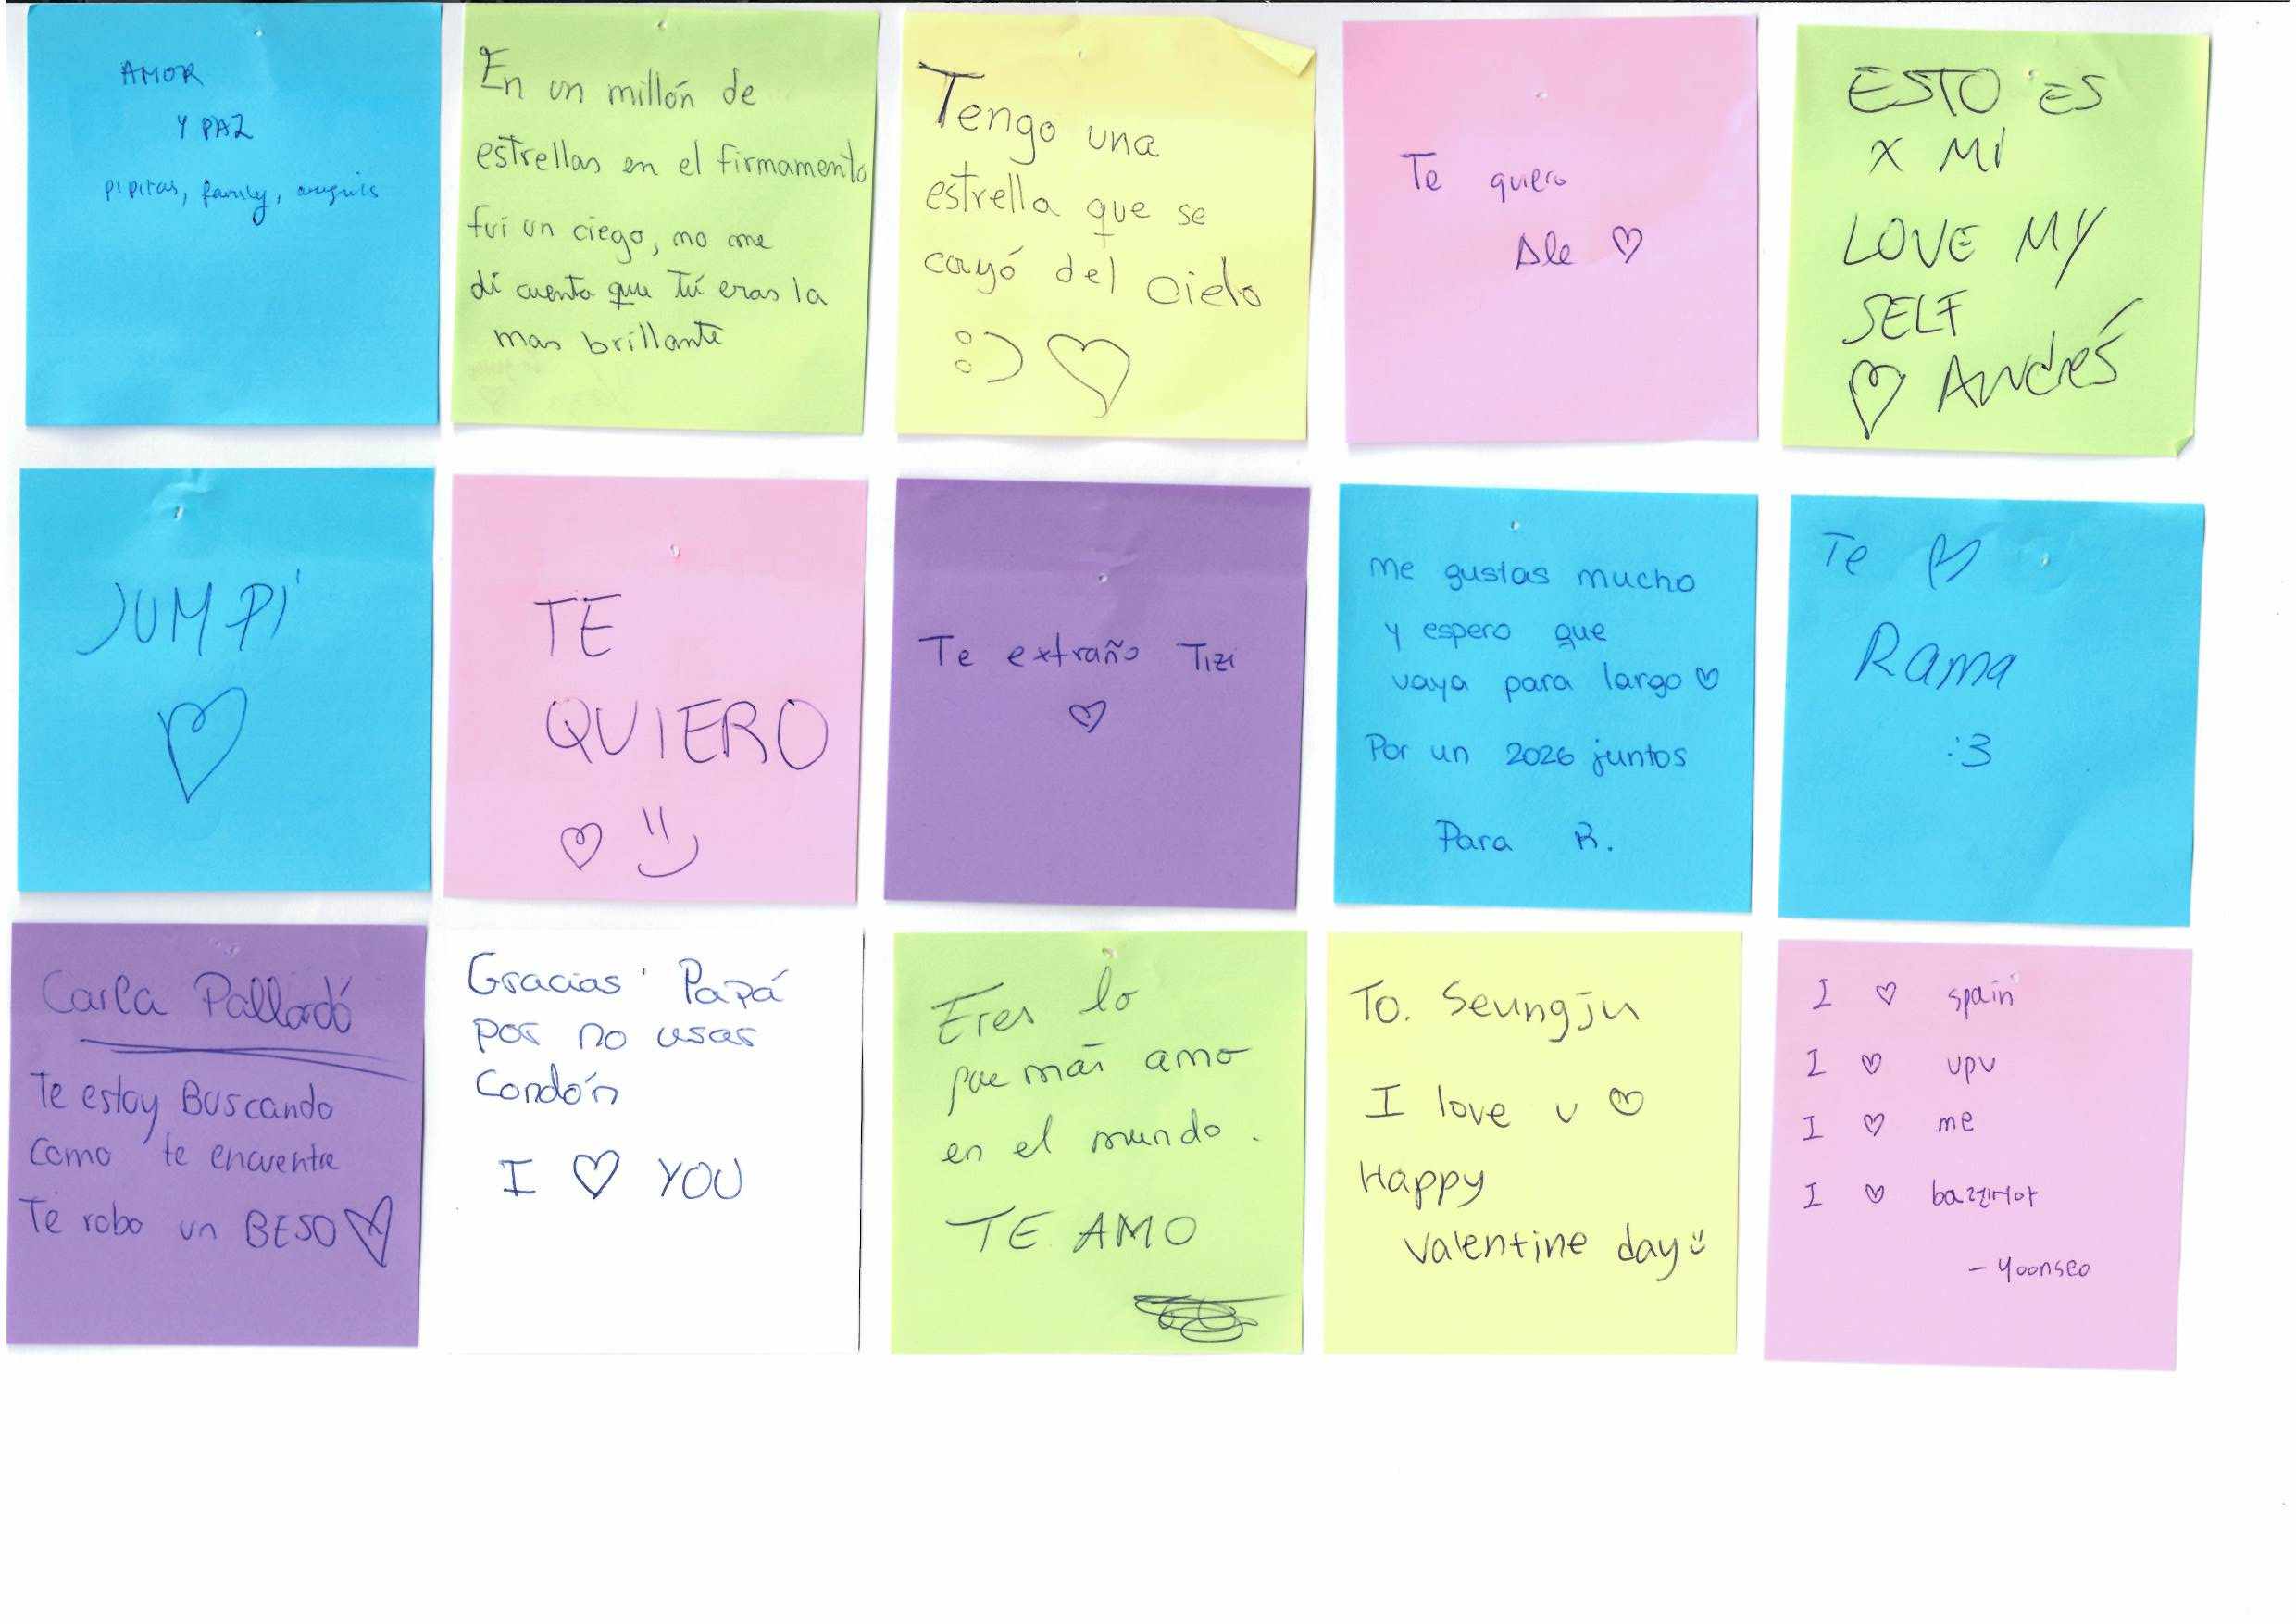 AMOR
Y PAZ
pipitas, family,
En un millón de
estrellas en el firmamento
fui un ciego, no me
di cuenta que tú eras la
mas brillante
Tengo una
estrella que se
cayó del cielo
:) ♡
Te quiero
Ale ♡
ESTO ES
X MÍ
LOVE MY
SELF
♡ Andrés
JUMPÍ
♡
TE
QUIERO
♡ :)
Te extraño Tizi
♡
me gustas mucho
y espero que
vaya para largo ♡
Por un 2026 juntos
Para R.
Te ♡
Rama
:3
Carla Pallardó
Te estoy Buscando
como te encuentre
Te robo un BESO ♡
Gracias Papá
por no usar
Condón
I ♡ YOU
Eres lo
que más amo
en el mundo.
TE AMO
To. Seungju
I love u ♡
Happy
Valentine day
I ♡ spain
I ♡ upv
I ♡ me
I ♡
- yoonseo